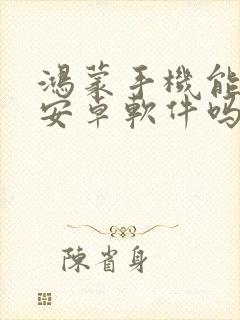 鴻蒙手機能
安卓軟件吗
陳省身